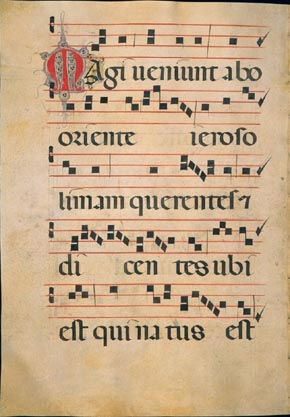 Magi veniunt abo
oriente ieroso
limam querentes ⁊
di cen tes ubi
est qui na tus est